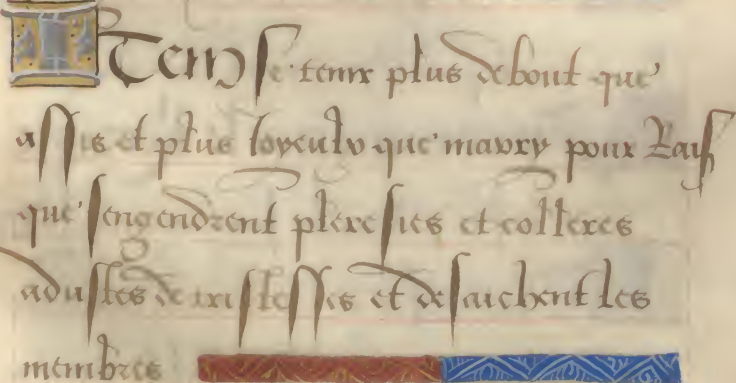 Item se tenir plus debout que
assis et plus joyeulx que marry pour Rais
que sengendrent pleresies et colleres
adustes de tristesses et desaichent les
membres